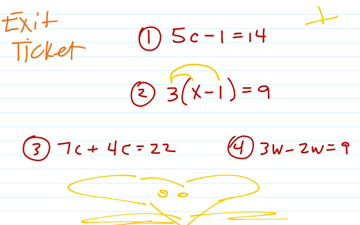 Exit
Ticket
① 5c-1=14
② 3(x-1)=9
③ 7c+4c=22
④ 3w-2w=9